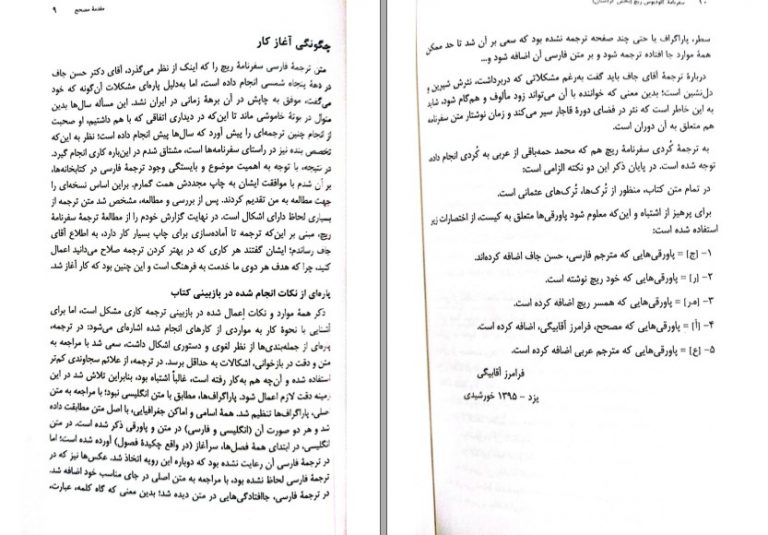 مقدمهٔ مصحح ۹
چگونگی آغاز کار
متن ترجمهٔ فارسی سفرنامهٔ ریچ را که اینک از نظر می‌گذرد، آقای دکتر حسن جاف
در دههٔ پنجاه شمسی انجام داده است، اما به‌دلیل پاره‌ای مشکلات آن‌گونه که خود
می‌گفت، موفق به چاپش در آن برههٔ زمانی در ایران نشد. این مسأله سال‌ها بدین
منوال در بوتهٔ خاموشی ماند تا این‌که در دیداری اتفاقی که با هم داشتیم، او صحبت
از انجام چنین ترجمه‌ای را پیش آورد که سال‌ها پیش انجام داده است؛ نظر به این‌که
تخصص بنده نیز در راستای سفرنامه‌ها است، مشتاق شدم در این‌باره کاری انجام گیرد.
در نتیجه، با توجه به اهمیت موضوع و بایستگی وجود ترجمهٔ فارسی در کتابخانه‌ها،
بر آن شدم با موافقت ایشان به چاپ مجددش همت گمارم. براین اساس نسخه‌ای را
جهت مطالعه به من تقدیم کردند. پس از بررسی و مطالعه، مشخص شد متن ترجمه از
بسیاری لحاظ دارای اشکال است. در نهایت گزارش خودم را از مطالعهٔ ترجمهٔ سفرنامهٔ
ریچ، مبنی بر این‌که ترجمه تا آماده‌سازی برای چاپ بسیار کار دارد، به اطلاع آقای
جاف رساندم؛ ایشان گفتند هر کاری که در بهتر کردن ترجمه صلاح می‌دانید اعمال
کنید، چرا که هدف هر دوی ما خدمت به فرهنگ است و این چنین بود که کار آغاز شد.
پاره‌ای از نکات انجام شده در بازبینی کتاب
ذکر همهٔ موارد و نکات اِعمال شده در بازبینی ترجمه کاری مشکل است، اما برای
آشنایی با نحوهٔ کار به مواردی از کارهای انجام شده اشاره‌ای می‌شود: در ترجمه،
پاره‌ای از جمله‌بندی‌ها از نظر لغوی و دستوری اشکال داشت، سعی شد با مراجعه به
متن و دقت در بازخوانی، اشکالات به حداقل برسد. در ترجمه، از علائم سجاوندی کم‌تر
استفاده شده و آن‌چه هم به‌کار رفته است، غالباً اشتباه بود، بنابراین تلاش شد در این
زمینه دقت لازم اعمال شود. پاراگراف‌ها، مطابق با متن انگلیسی نبود؛ با مراجعه به متن
اصلی، پاراگراف‌ها تنظیم شد. همهٔ اسامی و اماکن جغرافیایی، با اصل متن مطابقت داده
شد و هر دو صورت آن (انگلیسی و فارسی) در متن و پاورقی ذکر شده است. در متن
انگلیسی، در ابتدای همهٔ فصل‌ها، سرآغاز (در واقع چکیدهٔ فصول) آورده شده است؛ اما
در ترجمهٔ فارسی آن رعایت نشده بود که دوباره این رویه اتخاذ شد. عکس‌ها نیز که در
ترجمهٔ فارسی لحاظ نشده بود، با مراجعه به متن اصلی در جای مناسب خود اضافه شد.
در ترجمهٔ فارسی، جاافتادگی‌هایی در متن دیده شد؛ بدین معنی که گاه کلمه، عبارت،
سفرنامهٔ کلودیوس ریچ (بخش کردستان)
سطر، پاراگراف یا حتی چند صفحه ترجمه نشده بود که سعی بر آن شد تا حد ممکن
همهٔ موارد جا افتاده ترجمه شود و بر متن فارسی آن اضافه شود و...
دربارهٔ ترجمهٔ آقای جاف باید گفت به‌رغم مشکلاتی که دربرداشت، نثرش شیرین و
دل‌نشین است؛ بدین معنی که خواننده با آن می‌تواند زود مألوف و هم‌گام شود، شاید
به این خاطر است که نثر در فضای دورهٔ قاجار سیر می‌کند و زمان نوشتار متن سفرنامه
هم متعلق به آن دوران است.
به ترجمهٔ کُردی سفرنامهٔ ریچ هم که محمد حمه‌باقی از عربی به کُردی انجام داده،
توجه شده است. در پایان ذکر این دو نکته الزامی است:
در تمام متن کتاب، منظور از تُرک‌ها، تُرک‌های عثمانی است.
برای پرهیز از اشتباه و این‌که معلوم شود پاورقی‌ها متعلق به کیست، از اختصارات زیر
استفاده شده است:
۱- [ج] = پاورقی‌هایی که مترجم فارسی، حسن جاف اضافه کرده‌اند.
۲- [ر] = پاورقی‌هایی که خود ریچ نوشته است.
۳- [ه‍.ر] = پاورقی‌هایی که همسر ریچ اضافه کرده است.
۴- [آ] = پاورقی‌هایی که مصحح، فرامرز آقابیگی، اضافه کرده است.
۵- [ع] = پاورقی‌هایی که مترجم عربی اضافه کرده است.
فرامرز آقابیگی
یزد - ۱۳۹۵ خورشیدی